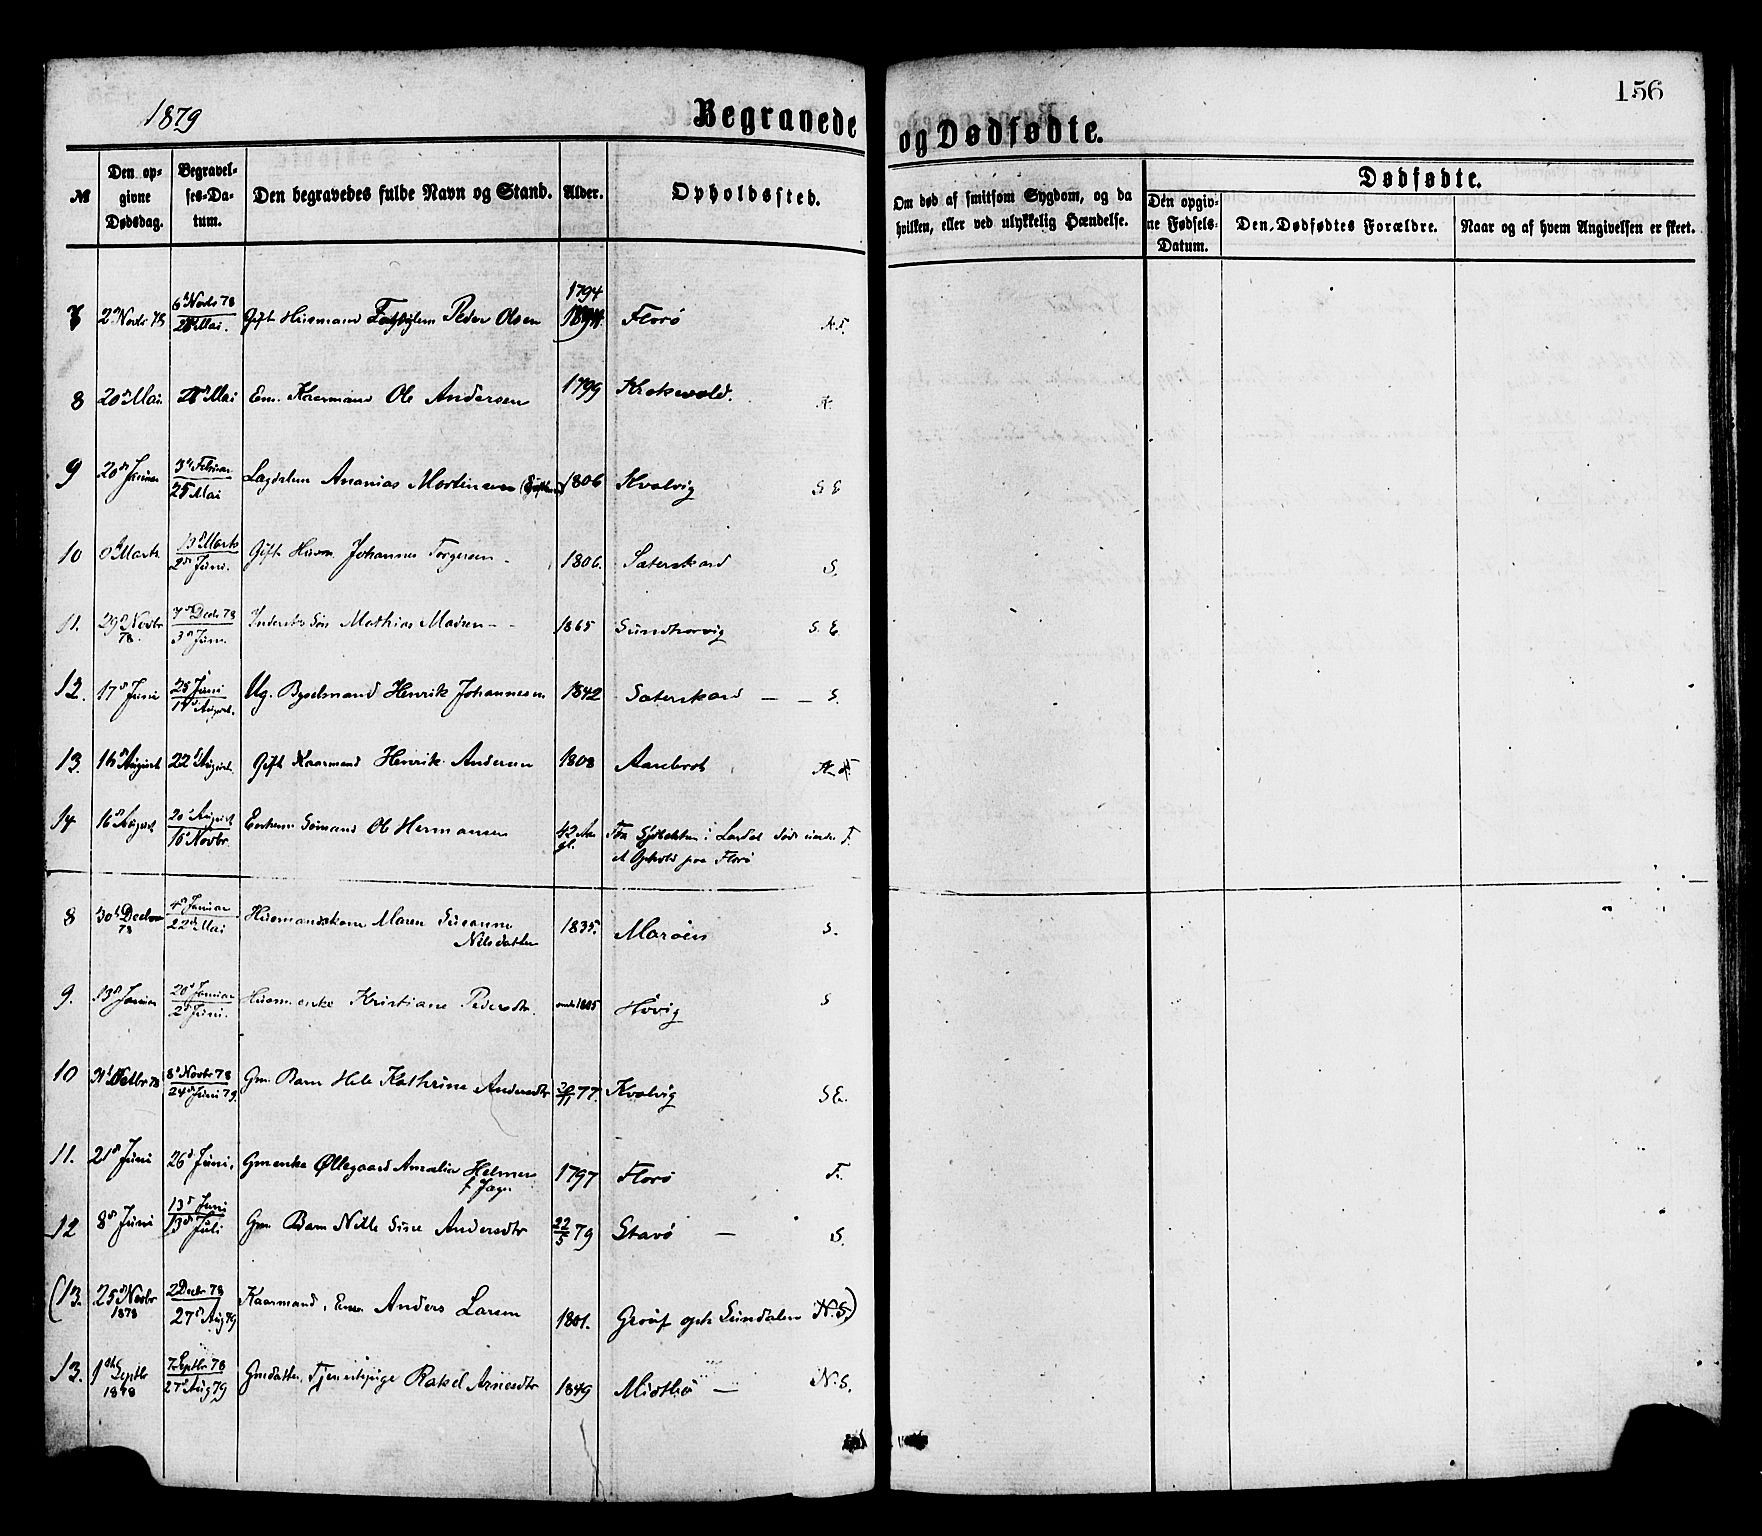 1879
Begravede
og Dødfødte.
156
№
Den op-
givne
Dødsdag.
Begravel-
ses-Da-
tum.
Den begravedes fulde Navn og Stand.
Alder.
Opholdssted.
Om død af smitsom Sygdom, og da
hvilken, eller ved ulykkelig Hændelse.
Dødfødte.
Den opgiv-
ne Fødsels-
Datum.
Den Dødfødtes Forældre.
Naar og af hvem Angivelsen er skeet.
2 Novbr 78 6 Novbr 78 Gift Husmand Peder Olsen 1794 Florø
8 20 Mai Mai Em. Kaarmand Ole Andersen 1799 Krokevold.
9 20 Januar 3 Februar
25 Mai Lægdslem Ananias Mortensen 1806 Kvalvig S E
10 Marts 13 Marts
2 Juni. Gift Husm. Johannes Torgersen 1806. Sæterskard S.
11. 29 Novbr 78. 7 Decbr 78
3 Juni. Inderets Søn Mathias Madsen 1865 S. E.
12. 17 Juni 25 Juni
August. Ug. Byselmand Henrik Johannesen 1842 Sæterskard S.
13. 16 August 22 August. Gift Kaarmand Henrik Andersen 1808 Aarebrot
14 16 August 20 August
16 Novbr. Enkem. Sømand Ole Hermansen 42 Aar
gl. Fra i Lærdal døde under F.
et Ophold paa Florø
8 30 Decbr
78 4 Januar
22 Mai Husmandskone Maren Susanne
Nilsdatter 1835. Marøen S.
9. 13 Januar 20 Januar
2 Juni. Husm.enke Kristiane Pedersdtr. Høvig S
10 31 Octbr 78 8 Novbr 78
24 Juni 79. Gm. Barn Hele Kathrine Andersdtr 77. Kvalvig S E.
11. 21 Juni 26 Juni. Gm.enke Øllegaard Amalia Helmer
f. 1797 Florø F.
12 8 Juni 13 Juni
13 Juli Gm. Barn Nille Sine Andersdtr 22/5 79 Stavø S.
(13. 25 Novbr
1878 2 Decbr 78
27 Aug 79 Kaarmand, Enkem. Anders Larsen 1801. Sundalen N.S.)
13. 1 Septbr
1878 7 Septbr 78
27 Aug 79 Gmdatter, Tjenestepige Rakel Arnesdtr 1849 N.S.